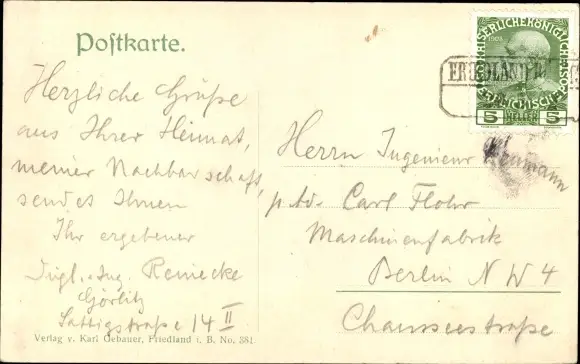 Postkarte.
Herzliche Grüße
aus Ihrer Heimat,
meiner Nachbarschaft,
sendet Ihnen
Ihr ergebener
Dipl.-Ing. Reinecke
Görlitz
Sattigstraße 14 II
Verlag v. Karl Gebauer, Friedland i. B. No. 381.
1908
5 HELLER 5
Herrn Ingenieur Neumann
p. Adr. Carl Flohr
Maschinenfabrik
Berlin N W 4
Chausseestraße